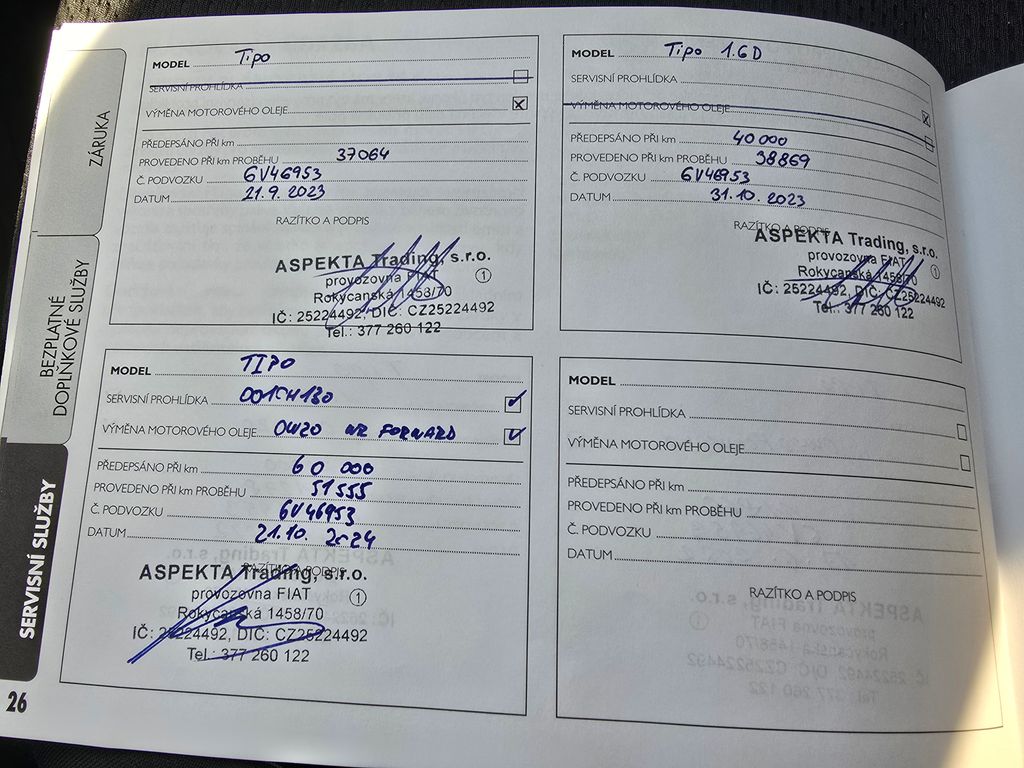 ZÁRUKA
BEZPLATNÉ
DOPLŇKOVÉ SLUŽBY
SERVISNÍ SLUŽBY
26
MODEL Tipo
SERVISNÍ PROHLÍDKA
VÝMĚNA MOTOROVÉHO OLEJE X
PŘEDEPSÁNO PŘI km
PROVEDENO PŘI KM PROBĚHU 37064
Č. PODVOZKU 6V46953
DATUM 21.9. 2023
RAZÍTKO A PODPIS
ASPEKTA Trading, s.r.o.
provozovna FIAT 1
Rokycanská 1458/70
IČ: 25224492, DIČ: CZ25224492
Tel.: 377 260 122
MODEL Tipo 1.6D
SERVISNÍ PROHLÍDKA
VÝMĚNA MOTOROVÉHO OLEJE
PŘEDEPSÁNO PŘI km 40 000
PROVEDENO PŘI KM PROBĚHU 38869
Č. PODVOZKU 6V46953
DATUM 31.10. 2023
RAZÍTKO A PODPIS
ASPEKTA Trading, s.r.o.
provozovna FIAT 1
Rokycanská 1458/70
IČ: 25224492, DIČ: CZ25224492
Tel.: 377 260 122
MODEL TIPO
SERVISNÍ PROHLÍDKA
VÝMĚNA MOTOROVÉHO OLEJE 0W20 WR FORWARD
PŘEDEPSÁNO PŘI km 60 000
PROVEDENO PŘI KM PROBĚHU 51555
Č. PODVOZKU 6V46953
DATUM 21.10. 2024
RAZÍTKO A PODPIS
ASPEKTA Trading, s.r.o.
provozovna FIAT 1
Rokycanská 1458/70
IČ: 25224492, DIČ: CZ25224492
Tel.: 377 260 122
MODEL
SERVISNÍ PROHLÍDKA
VÝMĚNA MOTOROVÉHO OLEJE
PŘEDEPSÁNO PŘI km
PROVEDENO PŘI KM PROBĚHU
Č. PODVOZKU
DATUM
RAZÍTKO A PODPIS